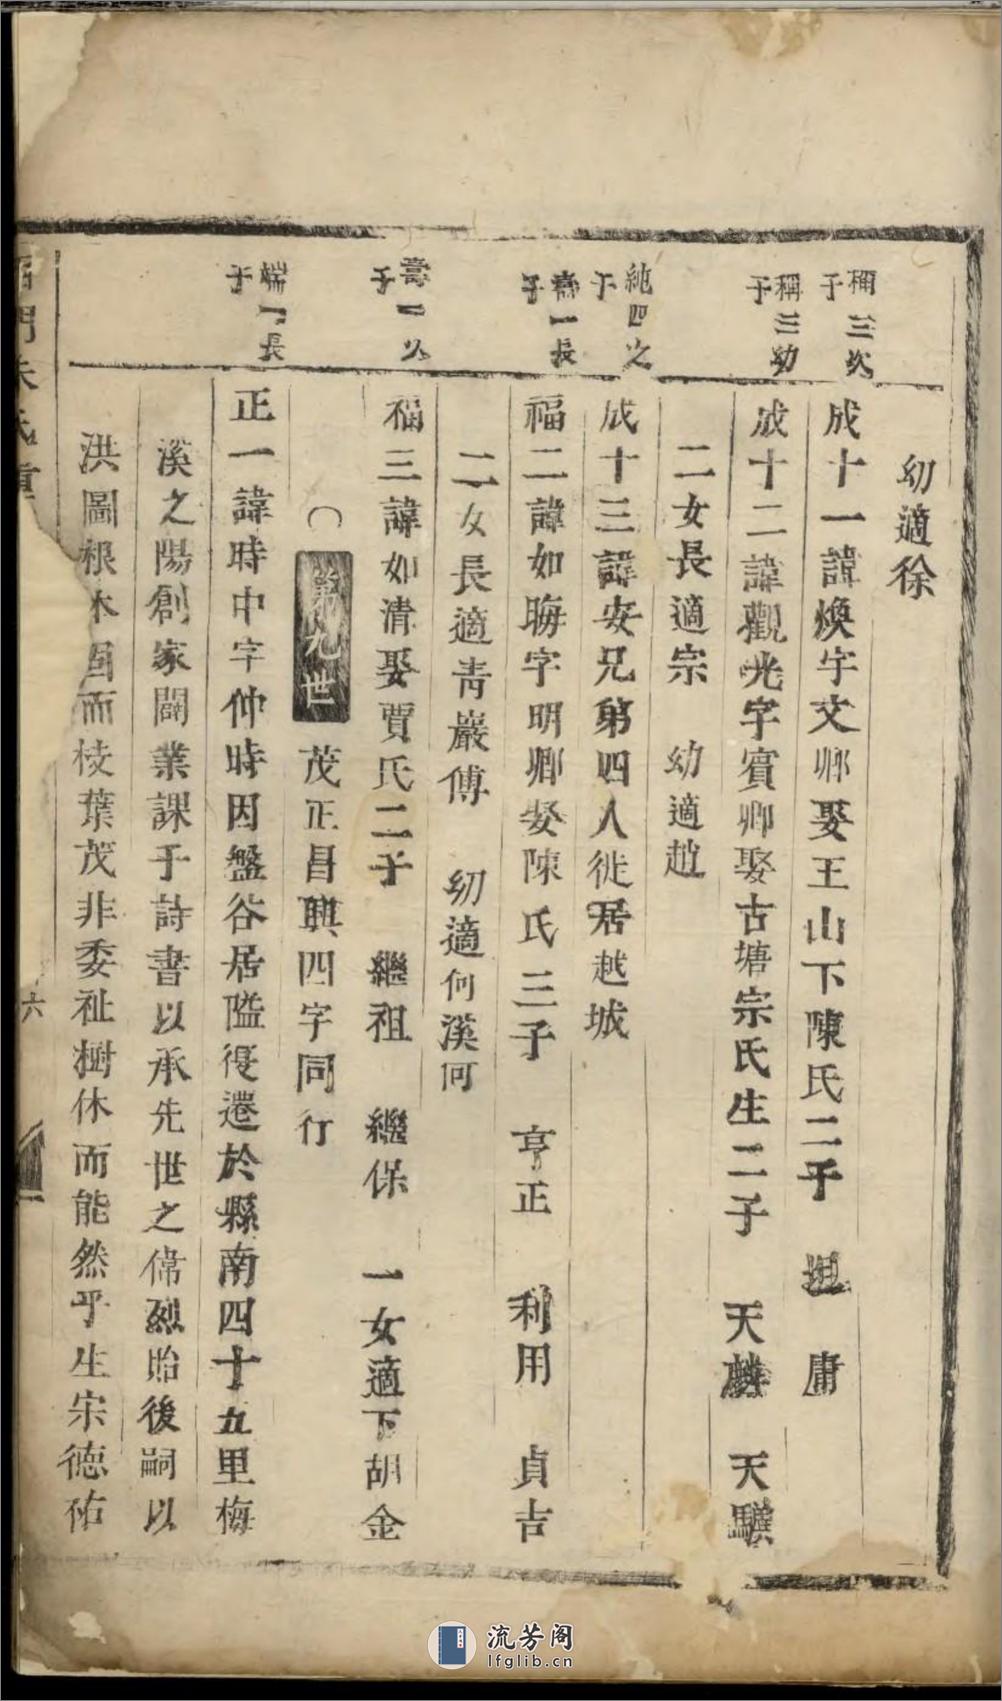 幼適徐
稱三次子
成十一諱煥字文卿娶王山下陳氏二子 坦 庸
稱三幼子
成十二諱觀光字賓卿娶古塘宗氏生二子 天麟 天驥
二女長適宗 幼適趙
純四之子
成十三諱安兄第四人徙居越城
壽一長子
福二諱如晦字明卿娶陳氏三子 亨正 利用 貞吉
二女長適青巖傅 幼適何溪何
壽一次子
福三諱如清娶賈氏二子 繼祖 繼保 一女適下胡金
○第九世 茂正昌興四字同行
端一長子
正一諱時中字仲時因盤谷居隘復遷於縣南四十五里梅
溪之陽創家闢業課子詩書以承先世之偉烈貽後嗣以
洪圖根本固而枝葉茂非委祉樹休而能然乎生宋德祐
門朱氏重
六
流芳阁
lfglib.cn